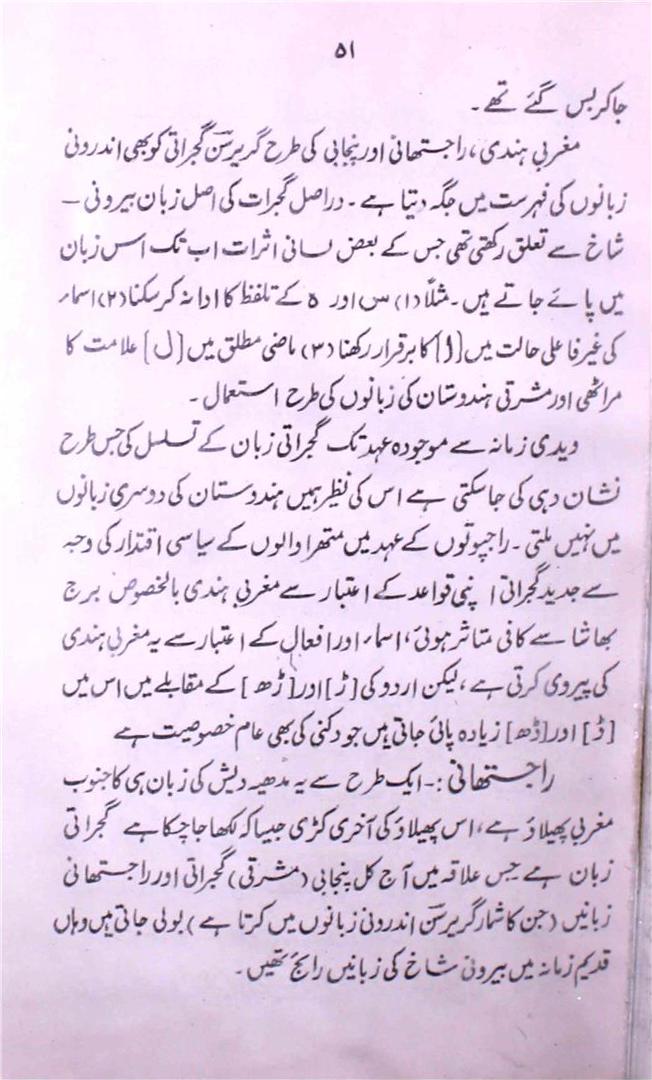 ۵۱
جاکر بس گئے تھے۔
مغربی ہندی، راجستھانی اور پنجابی کی طرح گریرسن گجراتی کو بھی اندرونی
زبانوں کی فہرست میں جگہ دیتا ہے۔ دراصل گجرات کی اصل زبان بیرونی –
شاخ سے تعلق رکھتی تھی جس کے بعض لسانی اثرات اب تک اس زبان
میں پائے جاتے ہیں۔ مثلاً (۱) س اور ہ کے تلفظ کا ادا نہ کرسکنا (۲) اسماء
کی غیر فاعلی حالت میں [ا] کا برقرار رکھنا (۳) ماضی مطلق میں [ل] علامت کا
مراٹھی اور مشرقی ہندوستان کی زبانوں کی طرح استعمال۔
ویدی زمانہ سے موجودہ عہد تک گجراتی زبان کے تسلسل کی جس طرح
نشان دہی کی جاسکتی ہے اس کی نظیر ہمیں ہندوستان کی دوسری زبانوں
میں نہیں ملتی۔ راجپوتوں کے عہد میں متھرا والوں کے سیاسی اقتدار کی وجہ
سے جدید گجراتی اپنی قواعد کے اعتبار سے مغربی ہندی بالخصوص برج
بھاشا سے کافی متاثر ہوئی، اسماء اور افعال کے اعتبار سے یہ مغربی ہندی
کی پیروی کرتی ہے، لیکن اردو کی [ڑ] اور [ڑھ] کے مقابلے میں اس میں
[ڈ] اور [ڈھ] زیادہ پائی جاتی ہیں جو دکنی کی بھی عام خصوصیت ہے
راجستھانی :- ایک طرح سے یہ مدھیہ دیش کی زبان ہی کا جنوب
مغربی پھیلاؤ ہے، اس پھیلاؤ کی آخری کڑی جیسا کہ لکھا جاچکا ہے گجراتی
زبان ہے جس علاقہ میں آج کل پنجابی (مشرقی) گجراتی اور راجستھانی
زبانیں (جن کا شمار گریرسن اندرونی زبانوں میں کرتا ہے) بولی جاتی ہیں وہاں
قدیم زمانہ میں بیرونی شاخ کی زبانیں رائج تھیں۔